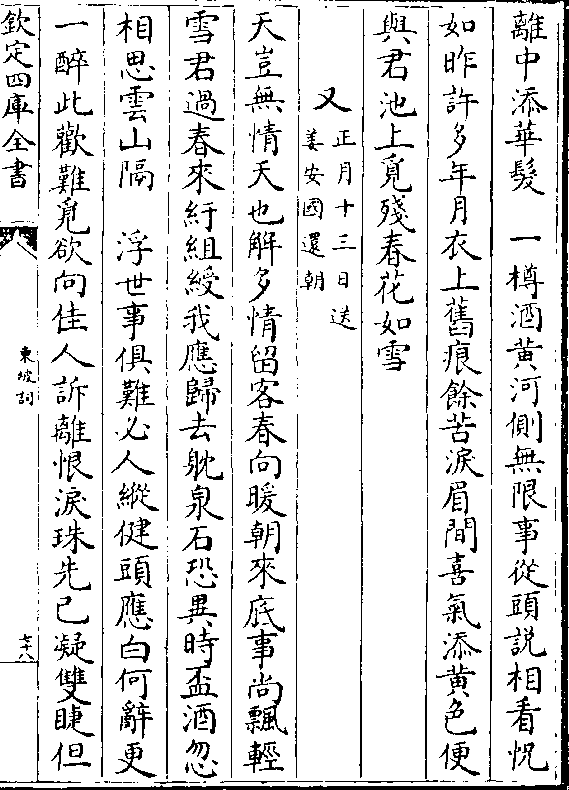 離中添華髮　一樽酒黄河側無限事從頭說相看怳
如昨許多年月衣上舊痕餘苦淚眉間喜氣添黄色便
與君池上覓殘春花如雪
又正月十三日送
姜安國還朝
天豈無情天也解多情留客春向暖朝來底事尚飄輕
雪君過春來紆組綬我應歸去躭泉石恐異時盃酒忽
相思雲山隔　浮世事俱難必人縱健頭應白何辭更
一醉此歡難覓欲向佳人訴離恨淚珠先已凝雙睫但
欽定四庫全書
東坡詞
七十八